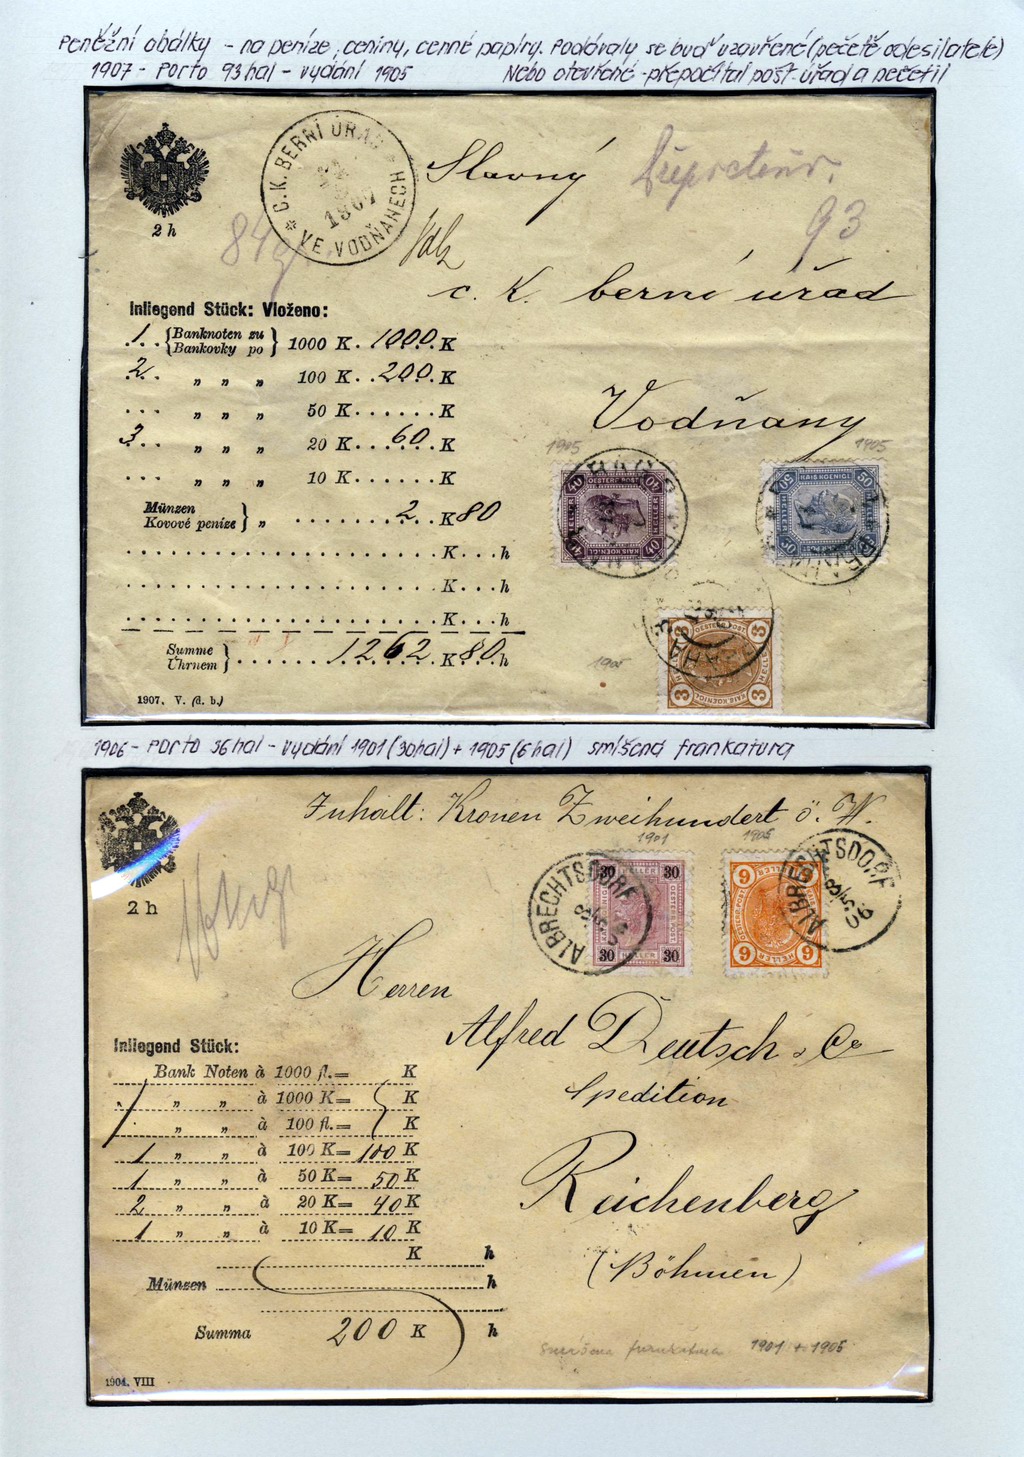 Peněžní obálky - na peníze, ceniny, cenné papíry. Podávaly se buď uzavřené (pečetě odesilatele)
1907 - Porto 93 hal - vydání 1905 Nebo otevřené - přepočítal pošt. úřad a pečetil
2 h
C. K. BERNÍ ÚŘAD
1907
VE VODŇANECH
Slavný
93
84 g
c. k. berní úřad
Vodňany
Inliegend Stück: Vloženo:
1 {Banknoten zu Bankovky po} 1000 K. 1000. K
2 " " " 100 K. 200. K
" " " 50 K. K
3 " " " 20 K. 60. K
" " " 10 K. K
Münzen Kovové peníze } " 2 K 80
K h
K h
K h
Summe Úhrnem } 1262 K 80 h
1907. V. (d. b.)
1905
1905
40 OESTERR. POST 40
HELLER KAIS. KOENIGL.
40 40
50 KAIS. KOENIGL. 50
50
PRAHA
1905
3 OESTERR. POST 3
3 KAIS. KOENIGL. 3
1906 - Porto 36 hal - vydání 1901 (30 hal) + 1905 (6 hal) smíšená frankatura
2 h
Inhalt: Kronen Zweihundert ö. W.
1901
1905
ALBRECHTSDORF
30 HELLER 30
30 HELLER 30
6 HELLER 6
6 HELLER 6
ALBRECHTSDORF
Herren
Alfred Deutsch & Co
Spedition
Reichenberg
(Böhmen)
Inliegend Stück:
Bank Noten à 1000 fl.= K
" " à 1000 K= K
" " à 100 fl.= K
1 " " à 100 K= 100 K
1 " " à 50 K= 50 K
2 " " à 20 K= 40 K
1 " " à 10 K= 10 K
K h
Münzen h
Summa 200 K h
smíšená frankatura 1901 + 1905
1904. VIII